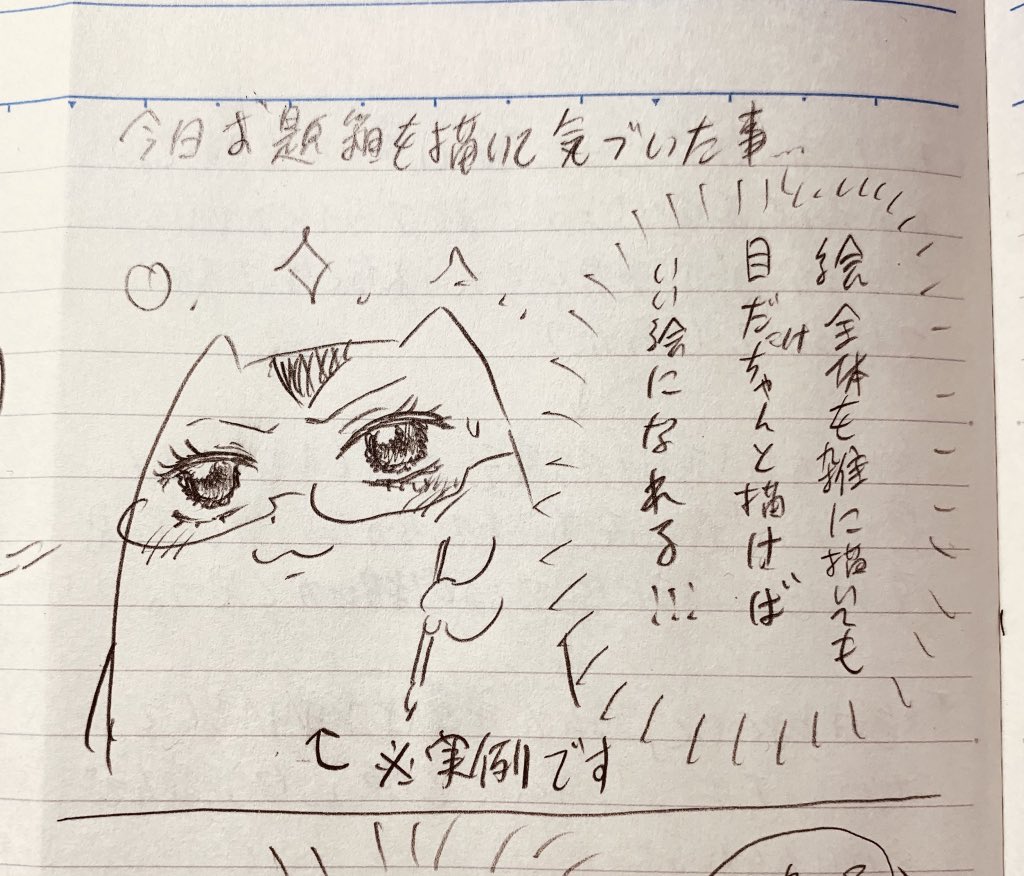 今日お題箱を描いて気づいた事…
絵全体も雑に描いても
目だけちゃんと描けば
いい絵になれる!!!
※実例です